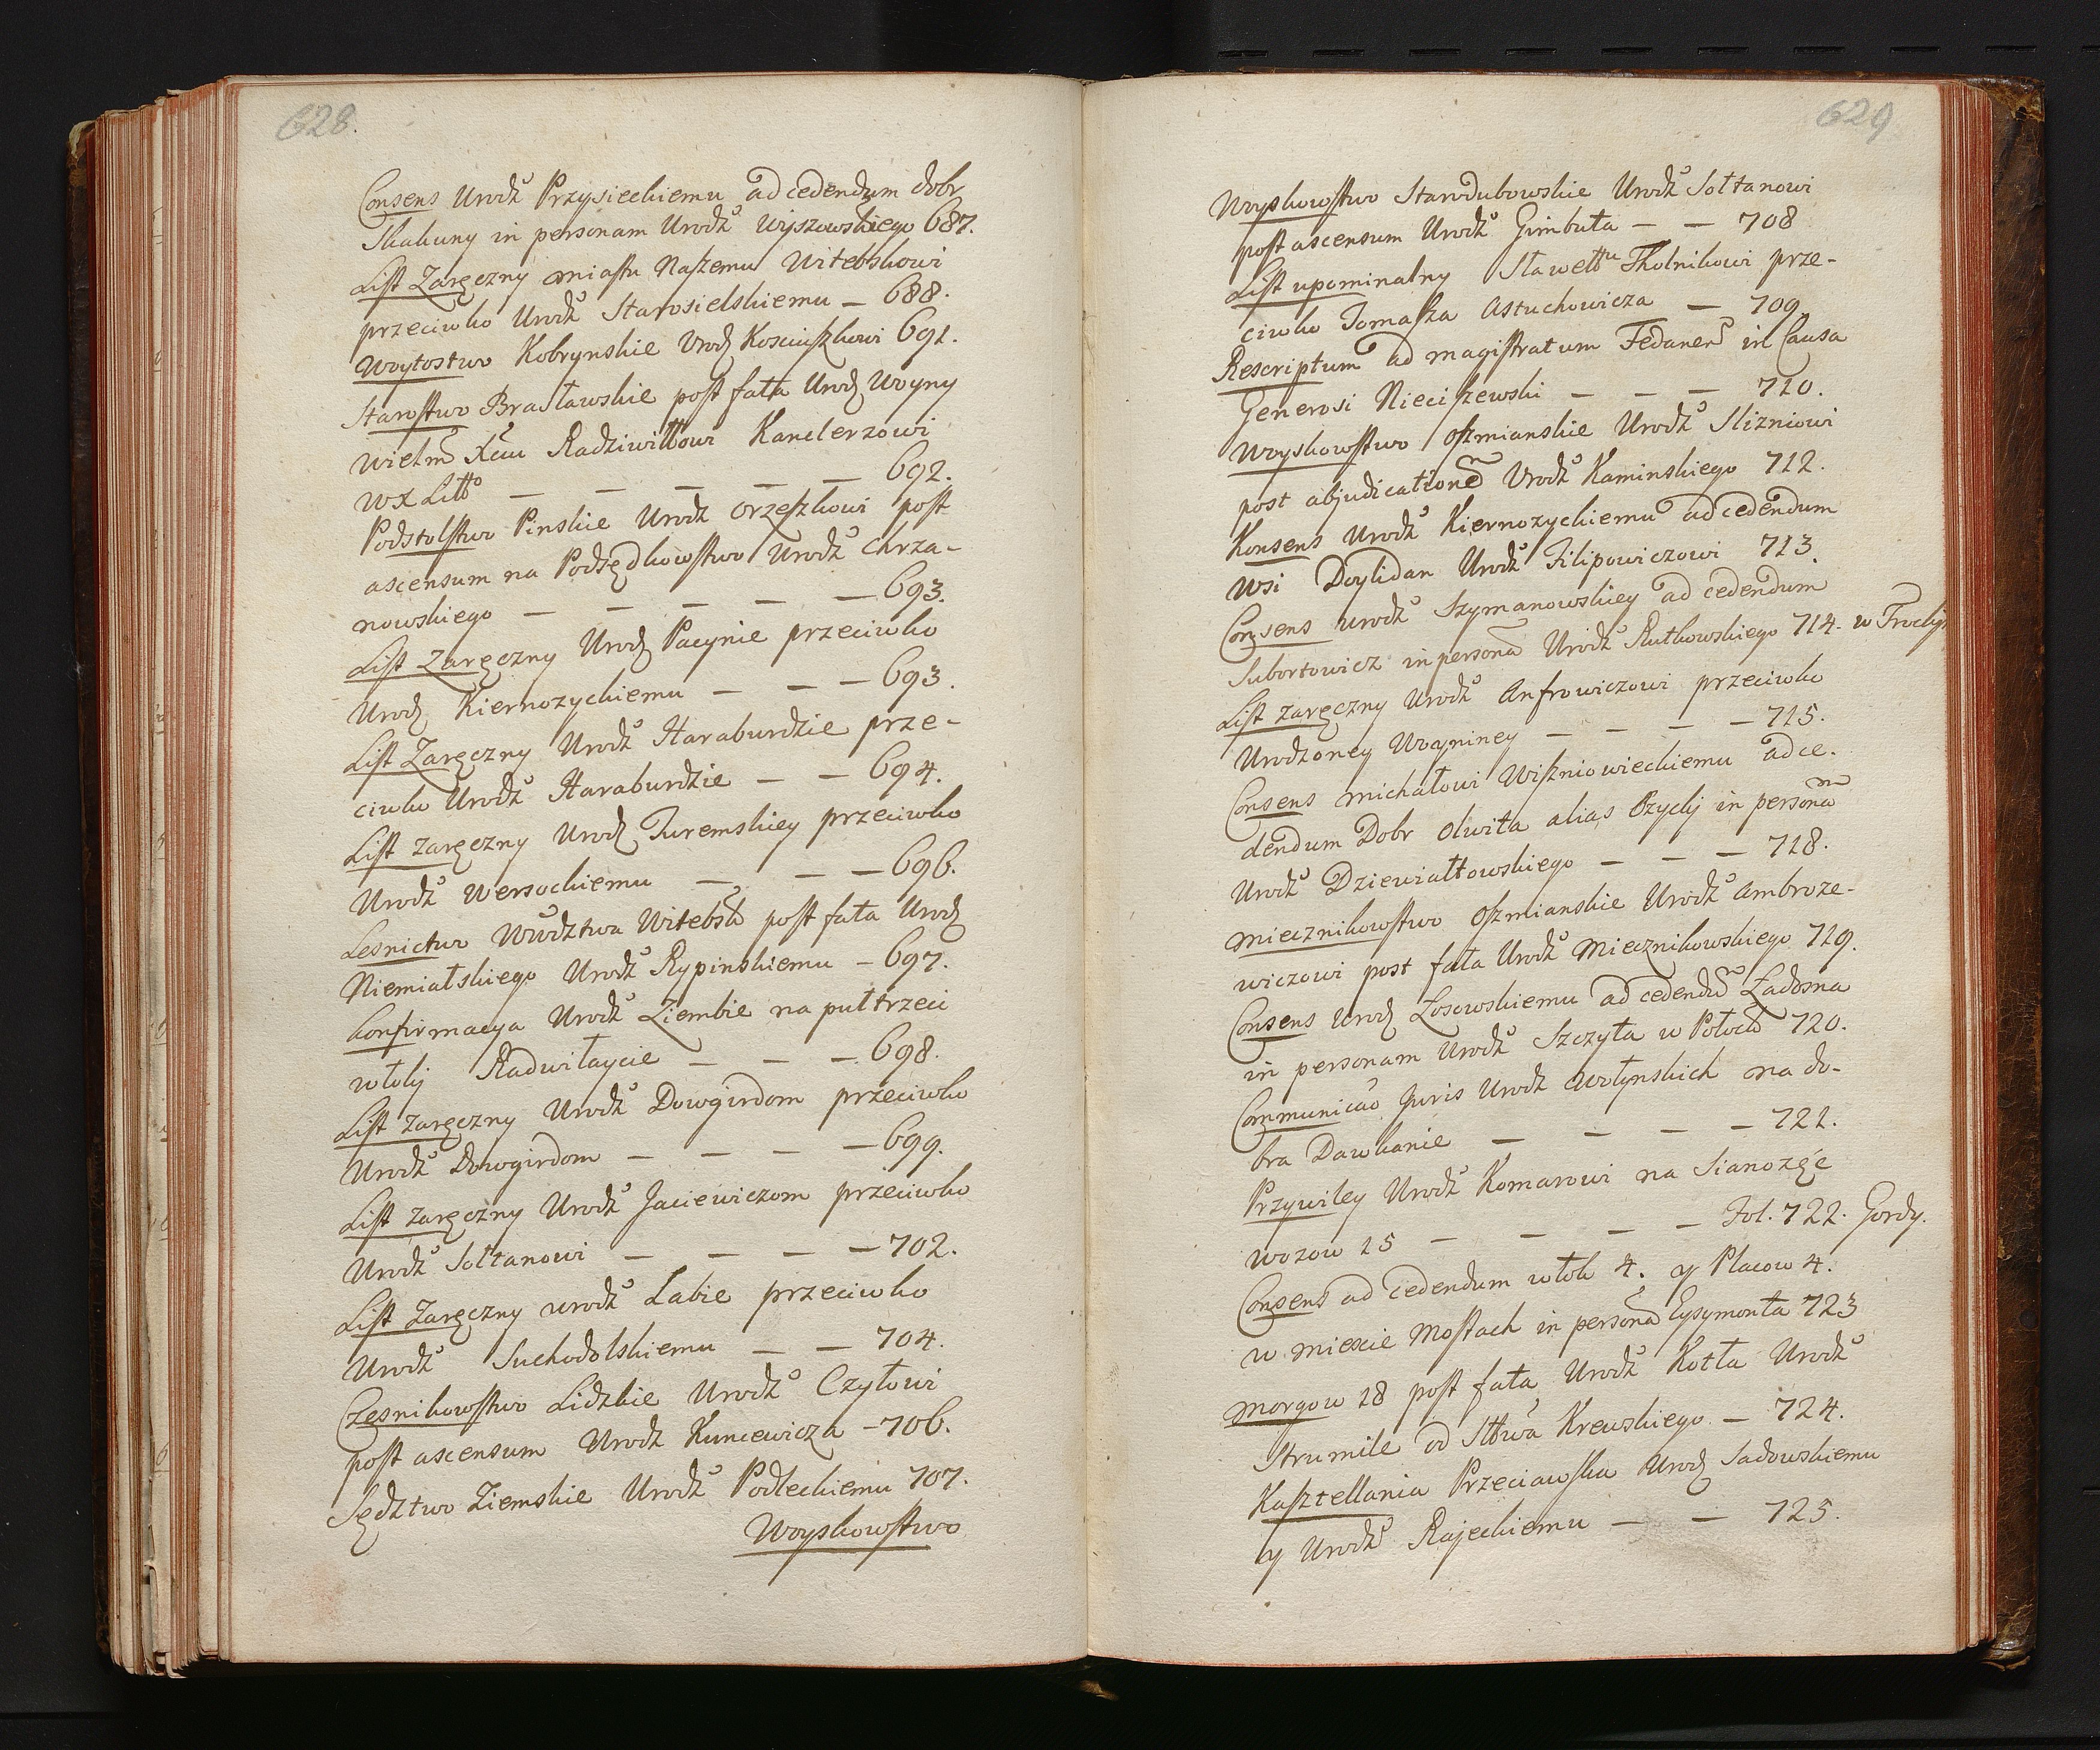 628.
Consens Urodź Przysieckiemu ad cedendum dobr
Skakuny in personam Urodź Wyszowskiego 687.
List Zaręczny miastu Naszemu Witebskowi
przeciwko Urodź Starosielskiemu — 688.
Woytostwo Kobrynskie Urodź Kosciuszkowi 691.
Starostwo Brasławskie post fata Urodź Woyny
Wielm Xciu Radziwiłłowi Kanclerzowi
WX Litto — — — — — 692.
Podstolstwo Pinskie Urodź Orzeszkowi post
ascensum na Podsędkowstwo Urodź Chrza-
nowskiego — — — — — 693.
List Zaręczny Urodź Pacynie przeciwko
Urodź Kiernozyckiemu — — — 693.
List Zaręczny Urodź Haraburdzie prze-
ciwko Urodź Haraburdzie — — 694.
List Zaręczny Urodź Turemskiey przeciwko
Urodź Wersockiemu — — — 696.
Lesnictwo Wwdztwa Witebsk post fata Urodź
Niemiałskiego Urodź Rypinskiemu — 697.
Konfirmacya Urodź Ziembie na puł trzeci
włoki Radwiłaycie — — — 698.
List Zaręczny Urodź Dowgirdom przeciwko
Urodź Dowgirdom — — — — 699.
List Zaręczny Urodź Jaciewiczom przeciwko
Urodź Sołtanowi — — — — 702.
List Zaręczny urodź Labie przeciwko
Urodź Suchodolskiemu — — 704.
Czesnikowstwo Lidzkie Urodź Czyżowi
post ascensum Urodź Kuncewicza — 706.
Sędztwo Ziemskie Urodź Podleckiemu 707.
Woyskowstwo
629
Woyskowstwo Starodubowskie Urodź Sołtanowi
post ascensum Urodź Gimbuta — — 708
List upominalny Sławettu Tkolnikowi prze-
ciwko Tomasza Astuchowicza — 709.
Rescriptum ad magistratum Fedanen in Causa
Generosi Nieciszewski — — — 710.
Woyskowstwo Oszmianskie Urodź Slizniowi
post abjudicatione Urodź Kaminskiego 712.
Konsens Urodź Kiernozyckiemu ad cedendum
Wsi Doylidan Urodź Filipowiczowi 713.
Consens urodź Szymanowskiey ad cedendum
Subortowicz in persona Urodź Rutkowskiego 714. w Trockij
List zaręczny Urodź Anfrowiczowi przeciwko
Urodzoney Woyniney — — — — 715.
Consens Michałowi Wiszniowieckiemu ad ce-
dendum Dobr Olwita alias Ozycky in persona
Urodź Dziewiałtowskiego — — — 718.
Miecznikowstwo Oszmianskie Urodź Ambroze-
wiczowi post fata Urodź Miecznikowskiego 719.
Consens Urodź Łosowskiemu ad cedendu Zadozna
in personam Urodź Szczyta w Połock 720.
Communicao Juris Urodź Wołynskich na do-
bra Dawkanie — — — — 721.
Przywiley Urodź Komarowi na Sianozęc
wozow 15 — — — — Fol. 722. Gordy.
Consens ad cedendum włok 4. y Placow 4.
w miescie Mostach in persona Eysymonta 723
Morgow 18 post fata Urodź Kotła Urodź
Strumile od Sttwa Krewskiego — 724.
Kasztellania Przeciawska Urodź Sadowskiemu
y Urodź Rajeckiemu — — 725.